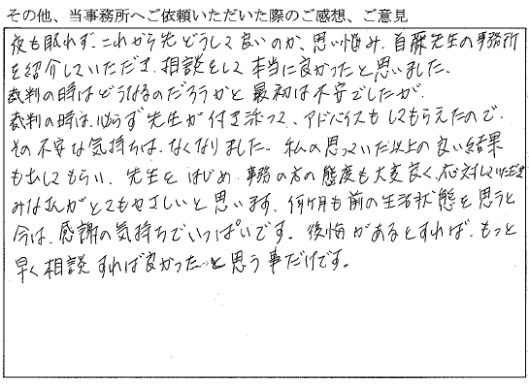 その他、当事務所へご依頼いただいた際のご感想、ご意見
夜も眠れず、これから先どうして良いのか、思い悩み、自藤先生の事務所
を紹介していただき、相談をして本当に良かったと思いました。
裁判の時はどうなるのだろうかと最初は不安でしたが、
裁判の時は、必らず先生が付き添って、アドバイスもしてもらえたので、
その不安な気持ちは、なくなりました。私の思っていた以上の良い結果
も出してもらい、先生をはじめ、事務の方の態度も大変良く、応対していただき
みなさんがとてもやさしいと思います。何ヶ月も前の生活状態を思うと
今は、感謝の気持ちでいっぱいです。後悔があるとすれば、もっと
早く相談すれば良かったと思う事だけです。